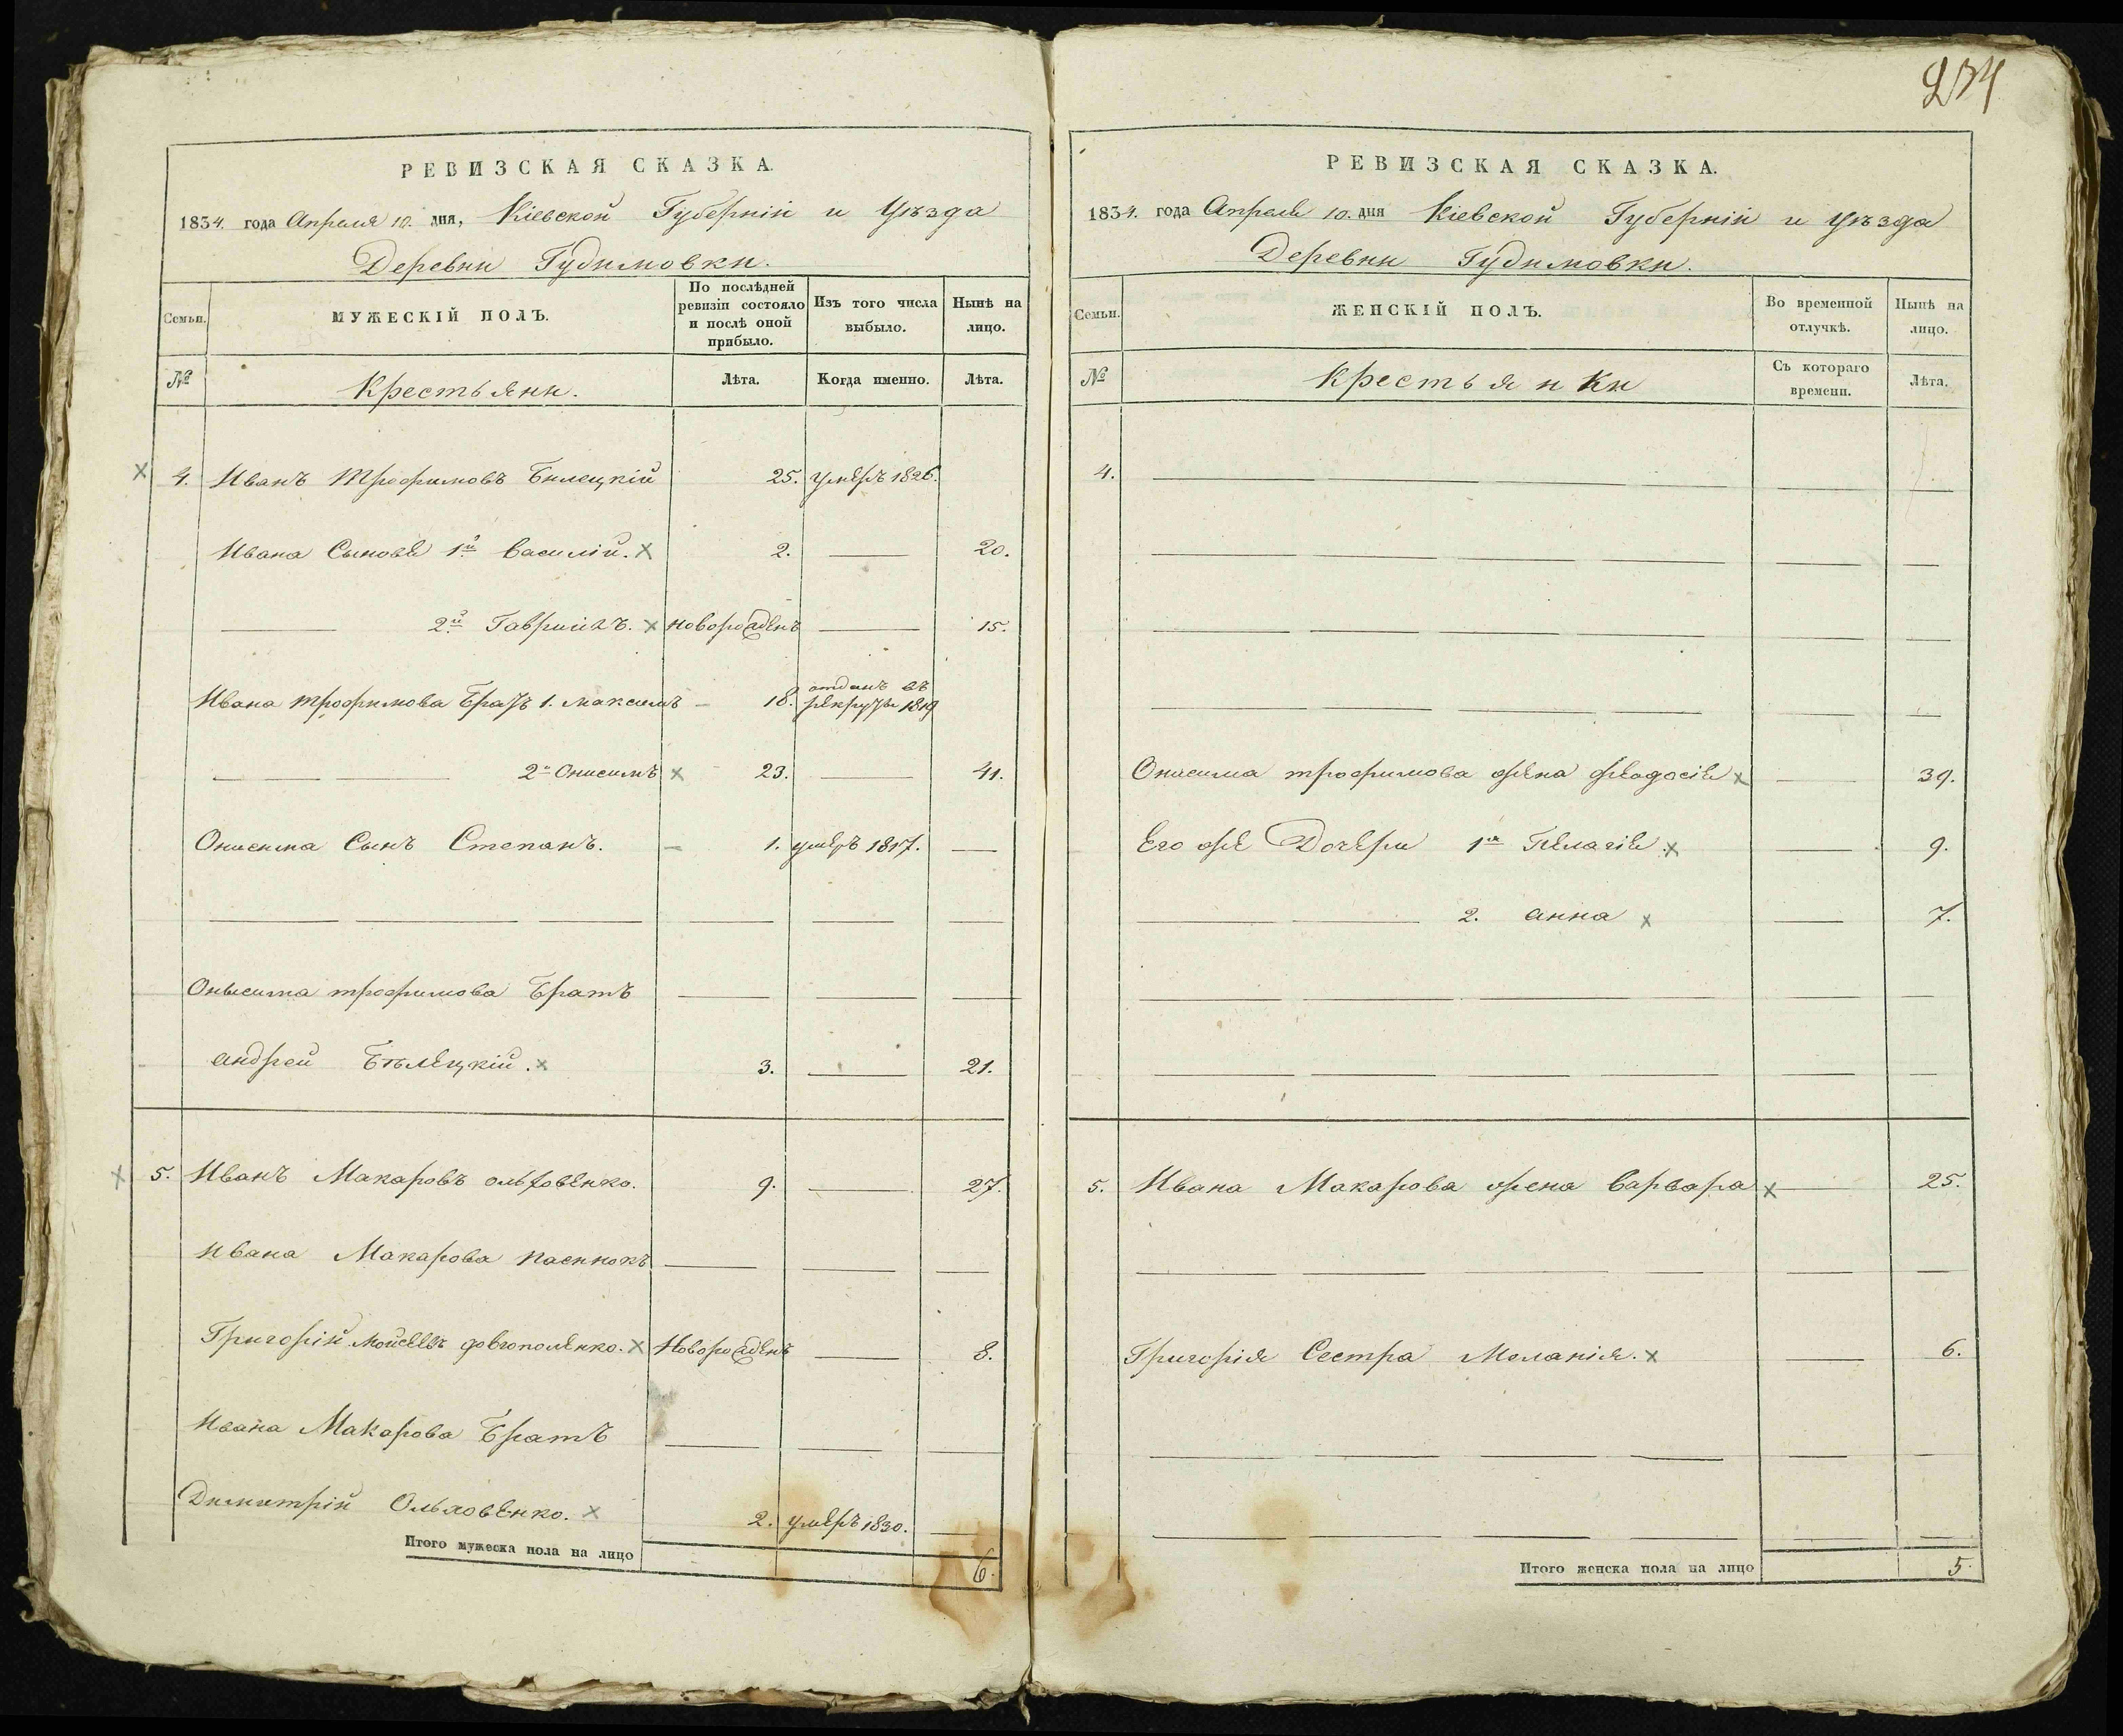 234
РЕВИЗСКАЯ СКАЗКА.
1834. года Апреля 10. дня, Кіевской Губерніи и Уѣзда
Деревни Гудимовки.
Семьи. МУЖЕСКІЙ ПОЛЪ. По послѣдней ревизіи состояло и послѣ оной прибыло. Изъ того числа выбыло. Нынѣ на лицо.
№ Крестьяни. Лѣта. Когда именно. Лѣта.
4. Иванъ Трофимовъ Билецкій 25. умеръ 1826.
Ивана Сыновя 1й Василій. 2. 20.
2й Гаврiилъ. новорожденъ 15.
Ивана трофимова Братъ 1. Максимъ 18. отданъ въ рекруты 1819
2й Онисимъ 23. 41.
Онисима Сынъ Степанъ. 1. умеръ 1817.
Онисима трофимова Братъ
андрей Бѣлецкій. 3. 21.
5. Иванъ Макаровъ ольховенко. 9. 27.
Ивана Макарова пасинокъ
Григорій Мойсеевъ довгополенко. Новорожденъ 8.
Ивана Макарова Братъ
Димитрій Ольховенко. 2. умеръ 1830.
Итого мужеска пола на лицо 6.
РЕВИЗСКАЯ СКАЗКА.
1834. года Апреля 10. дня Кіевской Губерніи и Уѣзда
Деревни Гудимовки.
Семьи. ЖЕНСКІЙ ПОЛЪ. Во временной отлучкѣ. Нынѣ на лицо.
№ Крестьянки Съ котораго времени. Лѣта.
4.
Онисима трофимова жена Феодосія 39.
Его же Дочери 1я Пелагія 9.
2. анна 7.
5. Ивана Макарова жена Варвара 25.
Григорія Сестра Меланія. 6.
Итого женска пола на лицо 5.